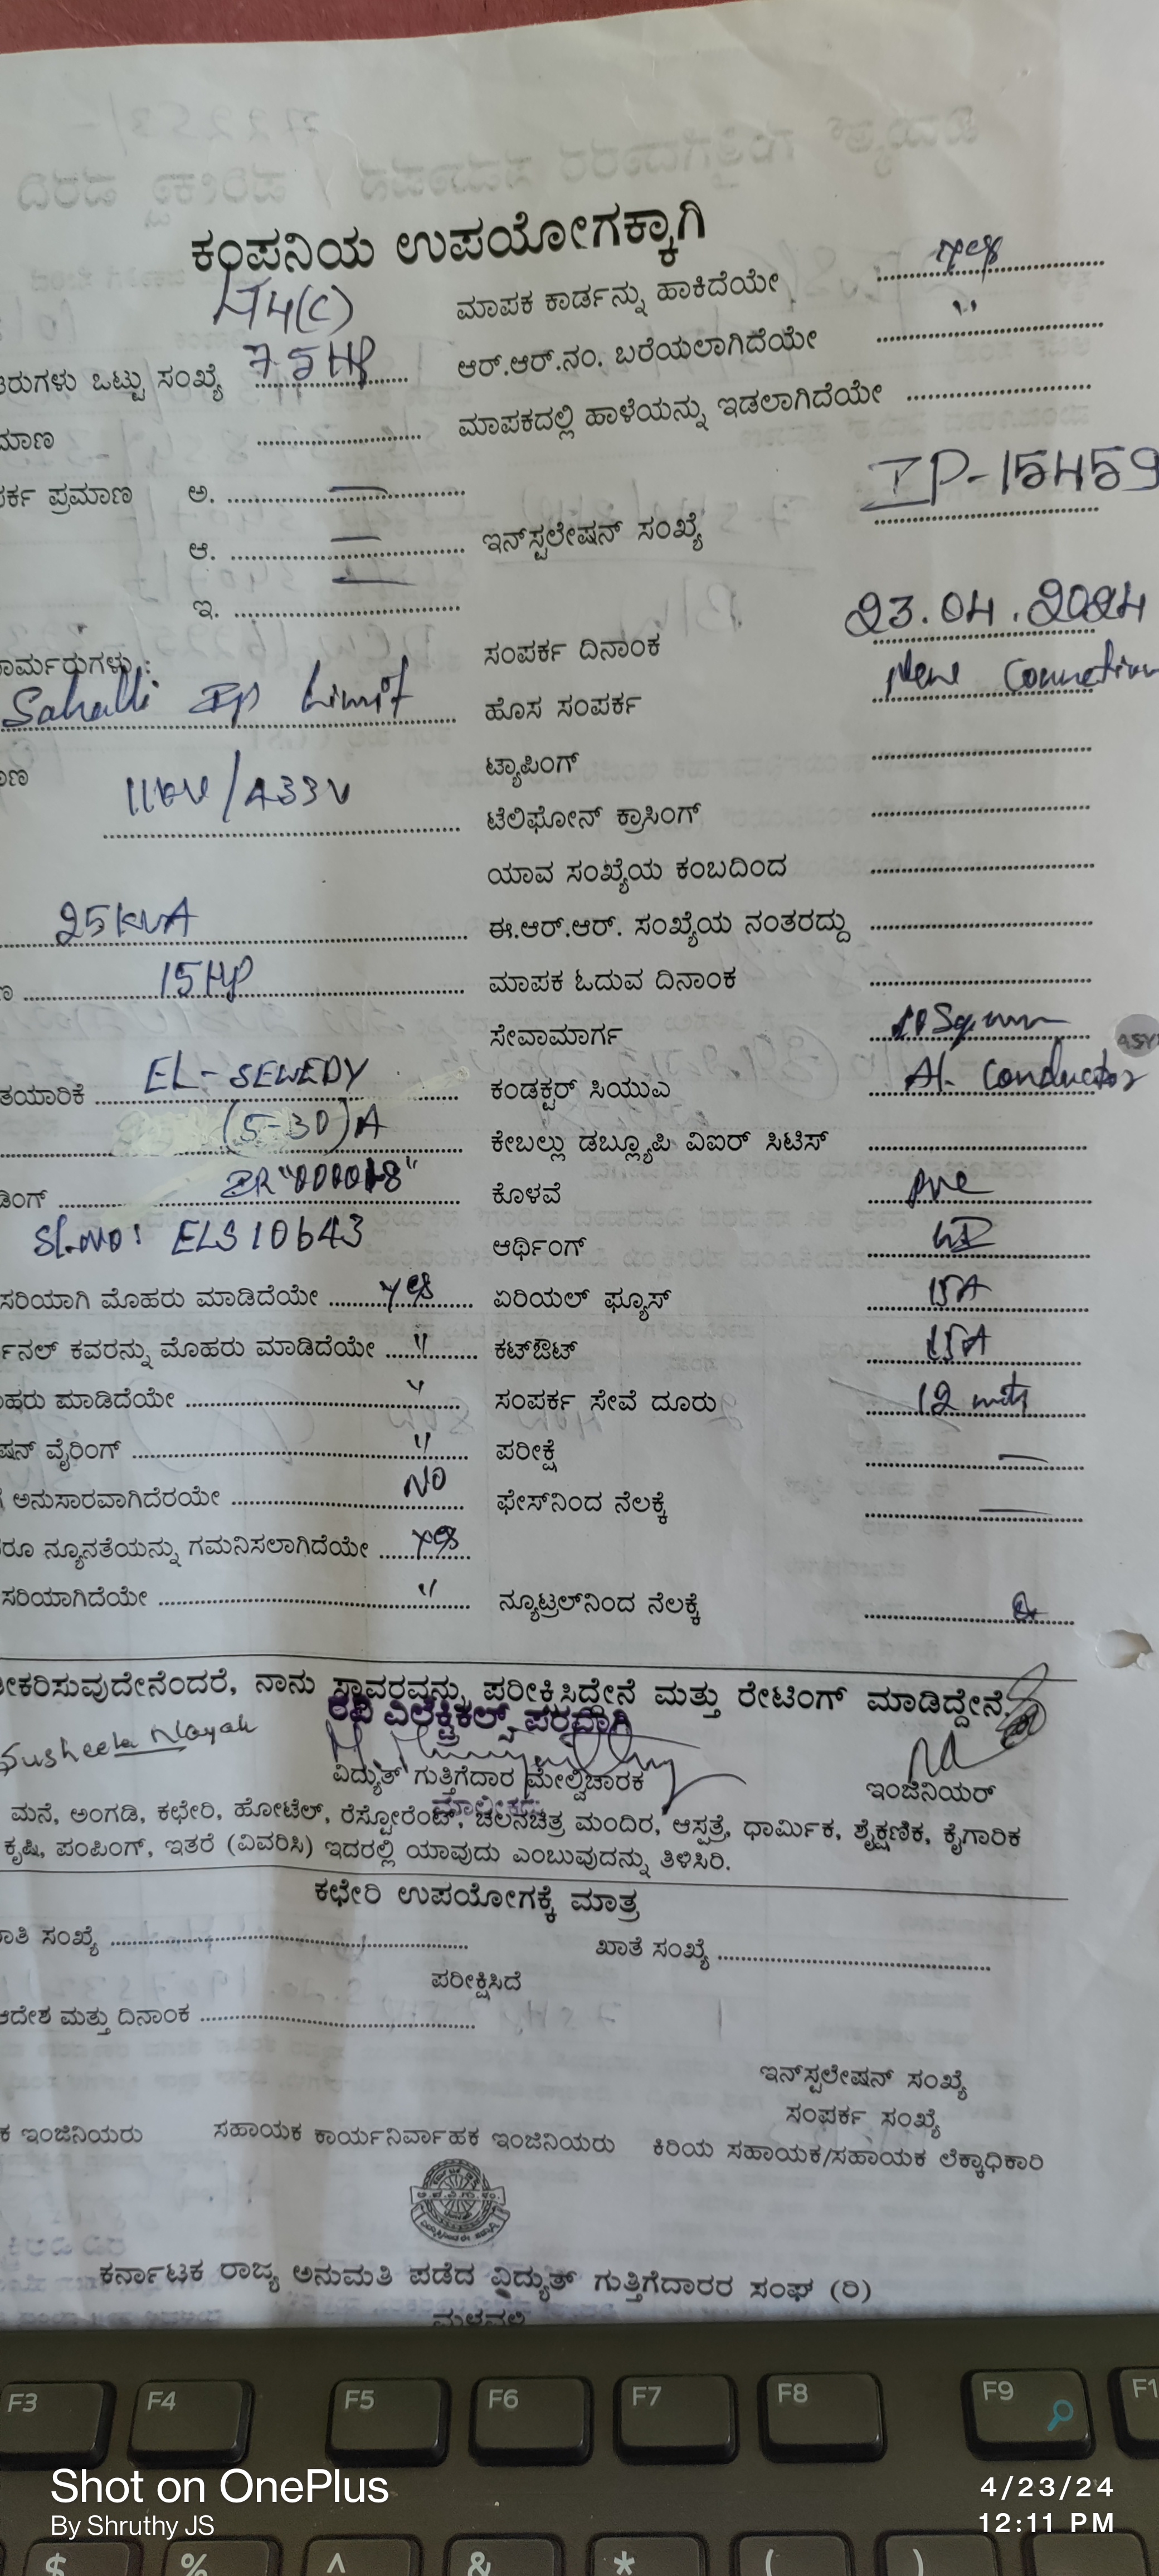 ಕಂಪನಿಯ ಉಪಯೋಗಕ್ಕಾಗಿ
LT4(C)
ಮಾಪಕ ಕಾರ್ಡನ್ನು ಹಾಕಿದೆಯೇ yes
ರುಗಳು ಒಟ್ಟು ಸಂಖ್ಯೆ 7.5 HP ಆರ್.ಆರ್.ನಂ. ಬರೆಯಲಾಗಿದೆಯೇ "
ಮಾಣ ಮಾಪಕದಲ್ಲಿ ಹಾಳೆಯನ್ನು ಇಡಲಾಗಿದೆಯೇ
ರ್ಕ ಪ್ರಮಾಣ ಅ. —
ಆ. — ಇನ್‌ಸ್ಟಲೇಷನ್ ಸಂಖ್ಯೆ IP-15459
ಇ. —
ಸಂಪರ್ಕ ದಿನಾಂಕ 23.04.2024
ಾರ್ಮರುಗಳು :
Sahalli Ip Limit ಹೊಸ ಸಂಪರ್ಕ New Connection
ಣ ಟ್ಯಾಪಿಂಗ್
11KV/433V ಟೆಲಿಫೋನ್ ಕ್ರಾಸಿಂಗ್
ಯಾವ ಸಂಖ್ಯೆಯ ಕಂಬದಿಂದ
25KVA ಈ.ಆರ್.ಆರ್. ಸಂಖ್ಯೆಯ ನಂತರದ್ದು
ಣ 15 HP ಮಾಪಕ ಓದುವ ದಿನಾಂಕ
ಸೇವಾಮಾರ್ಗ 10 Sq.mm
ತಯಾರಿಕೆ EL-SEWEDY ಕಂಡಕ್ಟರ್ ಸಿಯುಎ Al. Conductor
(5-30)A ಕೇಬಲ್ಲು ಡಬ್ಲ್ಯೂಪಿ ವಿಐರ್ ಸಿಟಿಸ್
ಡಿಂಗ್ IR "000018" ಕೊಳವೆ pvc
Sl.no: ELS10643 ಆರ್ಥಿಂಗ್
ಸರಿಯಾಗಿ ಮೊಹರು ಮಾಡಿದೆಯೇ yes ಏರಿಯಲ್ ಫ್ಯೂಸ್ 15A
ರ್ಮಿನಲ್ ಕವರನ್ನು ಮೊಹರು ಮಾಡಿದೆಯೇ " ಕಟ್‌ಔಟ್ 15A
ಹರು ಮಾಡಿದೆಯೇ " ಸಂಪರ್ಕ ಸೇವೆ ದೂರು 12 mts
ಷನ್ ವೈರಿಂಗ್ " ಪರೀಕ್ಷೆ —
ಅನುಸಾರವಾಗಿದೆರಯೇ NO ಫೇಸ್‌ನಿಂದ ನೆಲಕ್ಕೆ —
ರೂ ನ್ಯೂನತೆಯನ್ನು ಗಮನಿಸಲಾಗಿದೆಯೇ yes
ಸರಿಯಾಗಿದೆಯೇ " ನ್ಯೂಟ್ರಲ್‌ನಿಂದ ನೆಲಕ್ಕೆ
ೀಕರಿಸುವುದೇನೆಂದರೆ, ನಾನು ಸ್ಥಾವರವನ್ನು ಪರೀಕ್ಷಿಸಿದ್ದೇನೆ ಮತ್ತು ರೇಟಿಂಗ್ ಮಾಡಿದ್ದೇನೆ.
ರವಿ ಎಲೆಕ್ಟ್ರಿಕಲ್ಸ್ ಪರವಾಗಿ
Susheela Nayak
ವಿದ್ಯುತ್ ಗುತ್ತಿಗೆದಾರ ಮೇಲ್ವಿಚಾರಕ ಇಂಜಿನಿಯರ್
ಮಾಲೀಕರು
ಮನೆ, ಅಂಗಡಿ, ಕಛೇರಿ, ಹೋಟೆಲ್, ರೆಸ್ಟೋರೆಂಟ್, ಚಲನಚಿತ್ರ ಮಂದಿರ, ಆಸ್ಪತ್ರೆ, ಧಾರ್ಮಿಕ, ಶೈಕ್ಷಣಿಕ, ಕೈಗಾರಿಕ
ಕೃಷಿ, ಪಂಪಿಂಗ್, ಇತರೆ (ವಿವರಿಸಿ) ಇದರಲ್ಲಿ ಯಾವುದು ಎಂಬುವುದನ್ನು ತಿಳಿಸಿರಿ.
ಕಛೇರಿ ಉಪಯೋಗಕ್ಕೆ ಮಾತ್ರ
ಾತಿ ಸಂಖ್ಯೆ ಖಾತೆ ಸಂಖ್ಯೆ
ಪರೀಕ್ಷಿಸಿದೆ
ಆದೇಶ ಮತ್ತು ದಿನಾಂಕ
ಇನ್‌ಸ್ಟಲೇಷನ್ ಸಂಖ್ಯೆ
ಸಂಪರ್ಕ ಸಂಖ್ಯೆ
ಕ ಇಂಜಿನಿಯರು ಸಹಾಯಕ ಕಾರ್ಯನಿರ್ವಾಹಕ ಇಂಜಿನಿಯರು ಕಿರಿಯ ಸಹಾಯಕ/ಸಹಾಯಕ ಲೆಕ್ಕಾಧಿಕಾರಿ
ಕರ್ನಾಟಕ ರಾಜ್ಯ ಅನುಮತಿ ಪಡೆದ ವಿದ್ಯುತ್ ಗುತ್ತಿಗೆದಾರರ ಸಂಘ (ರಿ)
ಮಳವಳ್ಳಿ
F3 F4 F5 F6 F7 F8 F9 F1
Shot on OnePlus
By Shruthy JS
4/23/24
12:11 PM
$ % ^ & * ( )